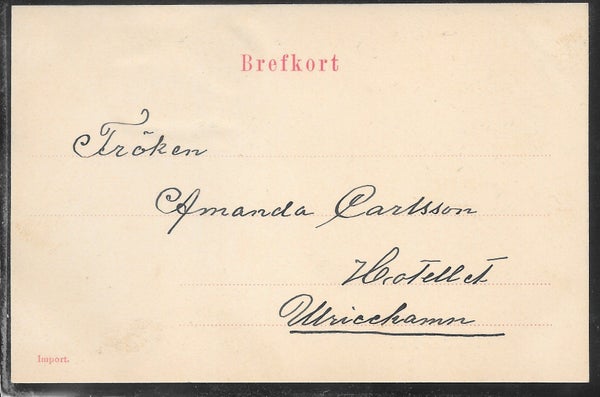 Brefkort
Fröken
Amanda Carlsson
Hotellet
Ulricehamn
Import.